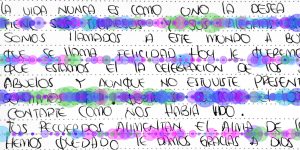 LA VIDA NUNCA ES COMO UNO LA DESEA
SOMOS LLAMADOS A ESTE MUNDO A
QUE SE LLAMA FELICIDAD HOY TE QUEREMOS
QUE ESTAMOS EN LA CELEBRACION DE
ABUELOS Y AUNQUE NO ESTUVISTE PRESENT
CONTARTE COMO NOS HABIA IDO.
TUS RECUERDOS ALIMENTAN EL ALMA DE
HEMOS QUEDADO LE DAMOS GRACIAS A DIOS